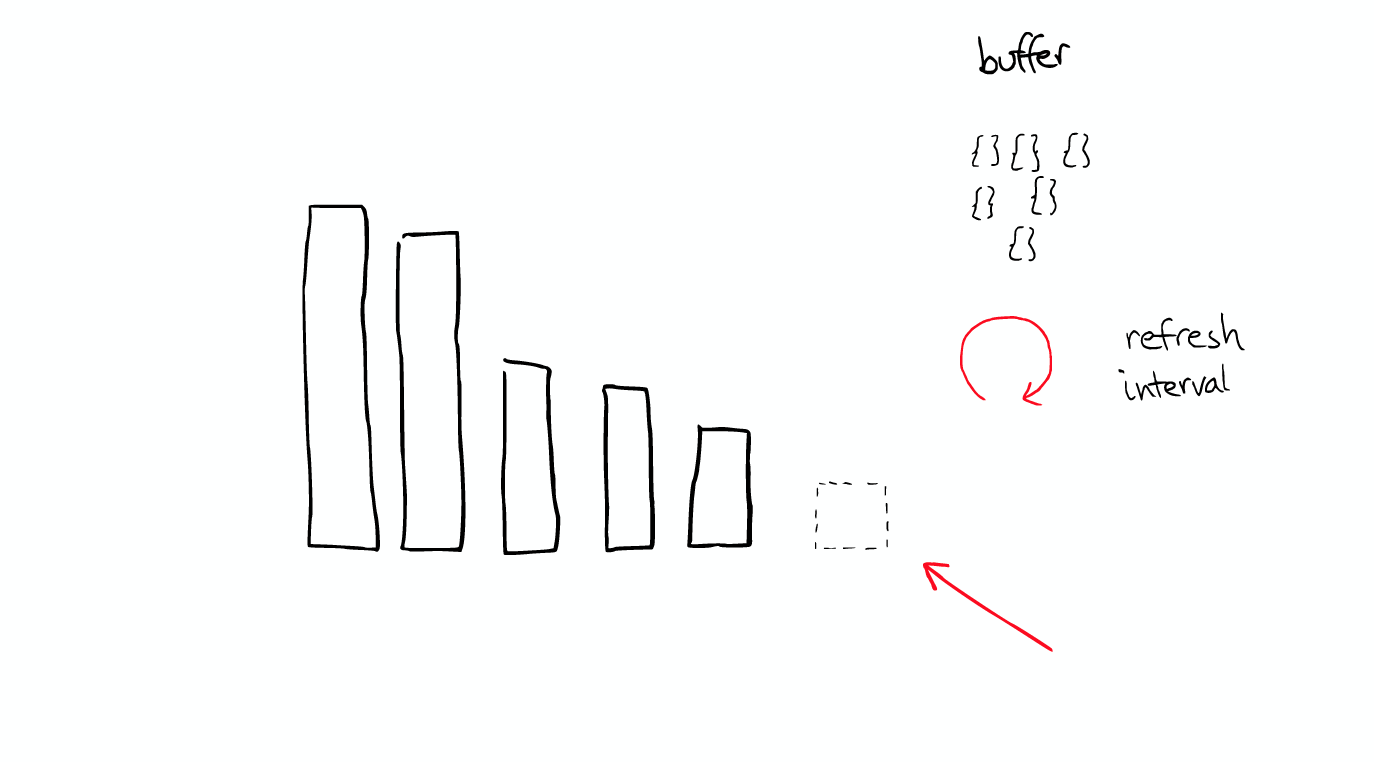 buffer
{} {} {}
{} {}
{}
refresh
interval